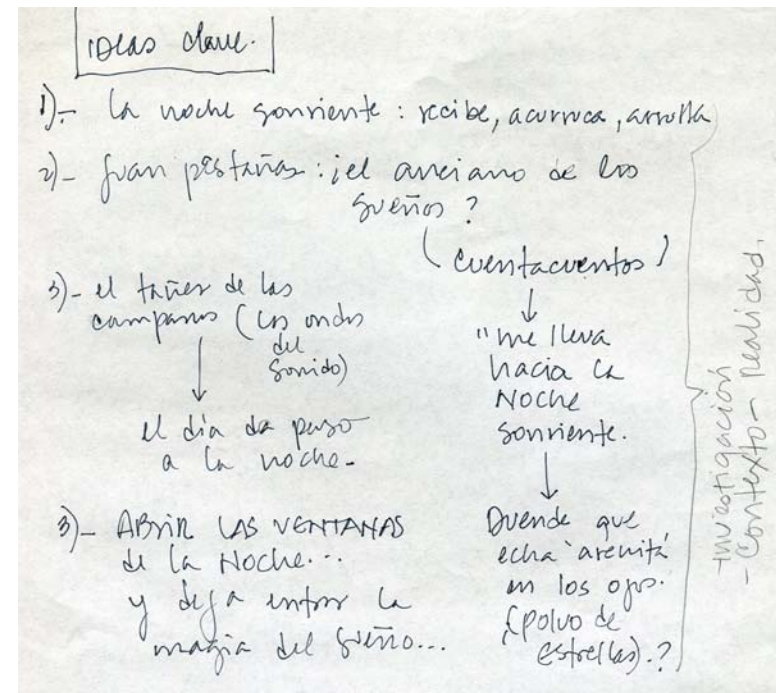 ideas clave.
1)- la noche sonriente : recibe, acurruca, arrulla
2)- Juan pestañas : ¡el anciano de los
sueños ?
(cuentacuentos)
↓
"me lleva
hacia la
Noche
sonriente.
↓
Duende que
echa arenita
en los ojos.
(polvo de
estrellas).?
3)- el tañer de las
campanas (las ondas
del
sonido)
↓
el día da paso
a la noche-
3)- ABRIR LAS VENTANAS
de la Noche...
y deja entrar la
magia del sueño...
investigación
- Contexto - Realidad.